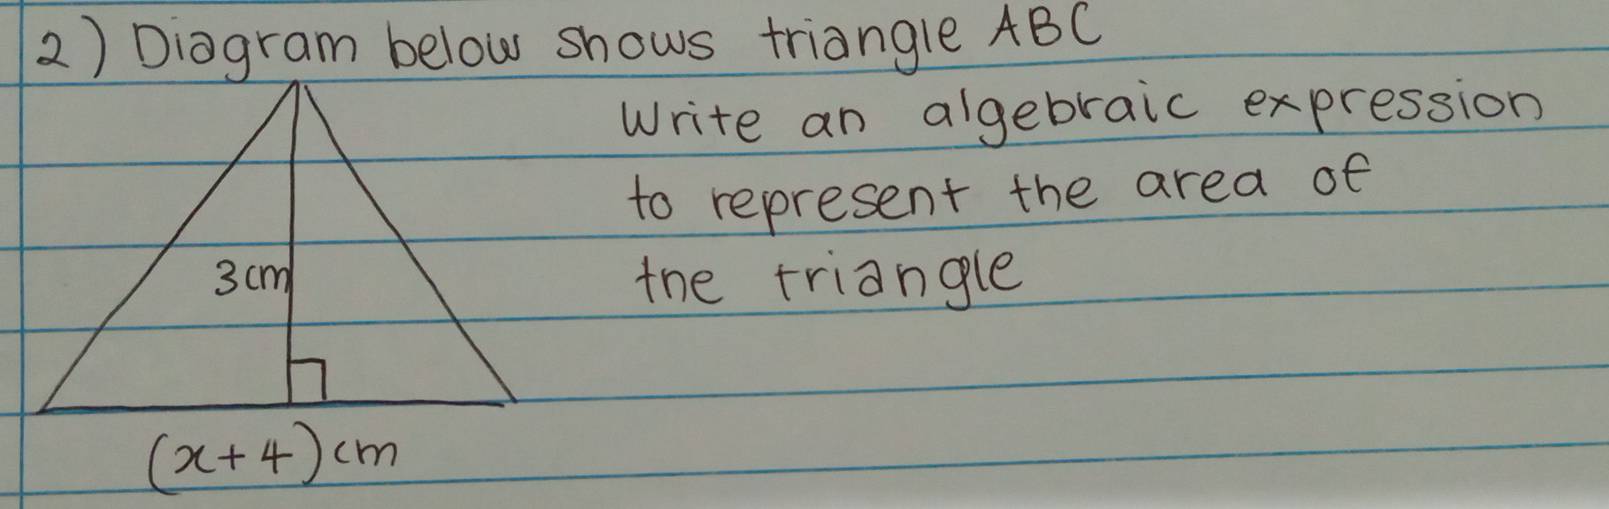 2) Diagram below shows triangle ABC
Write an algebraic expression
to represent the area of
the triangle
3cm
(x+4)cm